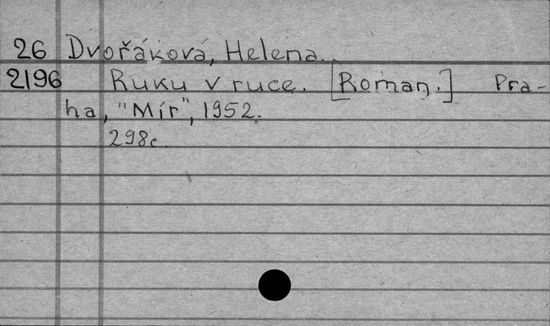 26 Dvořáková, Helena.
2196 Ruku v ruce. [Roman.] Pra-
ha, "Mír", 1952.
298c.